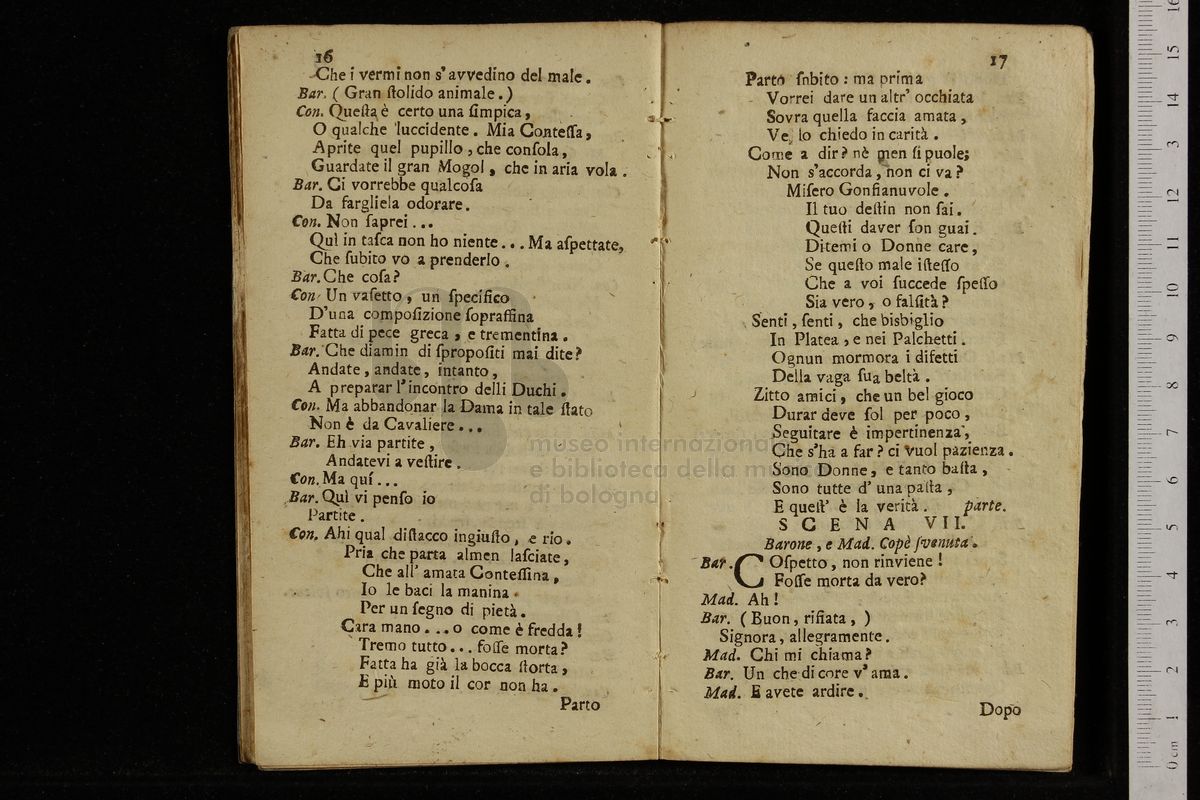 16
Che i vermi non s'avvedino del male.
Bar. (Gran ſtolido animale.)
Con. Queſta è certo una ſimpica,
O qualche 'luccidente. Mia Conteſſa,
Aprite quel pupillo, che conſola,
Guardate il gran Mogol, che in aria vola.
Bar. Ci vorrebbe qualcoſa
Da fargliela odorare.
Con. Non ſaprei...
Quì in taſca non ho niente... Ma aſpettate,
Che ſubito vo a prenderlo.
Bar. Che coſa?
Con. Un vaſetto, un ſpecifico
D'una compoſizione ſopraffina
Fatta di pece greca, e trementina.
Bar. Che diamin di ſpropoſiti mai dite?
Andate, andate, intanto,
A preparar l'incontro delli Duchi.
Con. Ma abbandonar la Dama in tale ſtato
Non è da Cavaliere...
Bar. Eh via partite,
Andatevi a veſtire.
Con. Ma quí...
Bar. Quì vi penſo io
Partite.
Con. Ahi qual diſtacco ingiuſto, e rio.
Pria che parta almen laſciate,
Che all' amata Conteſſina,
Io le baci la manina.
Per un ſegno di pietà.
Cara mano...o come è fredda!
Tremo tutto... foſſe morta?
Fatta ha già la bocca ſtorta,
E più moto il cor non ha.
Parto
17
Parto ſnbito: ma prima
Vorrei dare un altr' occhiata
Sovra quella faccia amata,
Ve lo chiedo in carità.
Come a dir? nè men ſi puole;
Non s'accorda, non ci va?
Miſero Gonfianuvole.
Il tuo deſtin non ſai.
Queſti daver ſon guai.
Ditemi o Donne care,
Se queſto male iſteſſo
Che a voi ſuccede ſpeſſo
Sia vero, o falſità?
Senti, ſenti, che bisbiglio
In Platea, e nei Palchetti.
Ognun mormora i difetti
Della vaga ſua beltà.
Zitto amici, che un bel gioco
Durar deve ſol per poco,
Seguitare è impertinenza,
Che s'ha a far? ci vuol pazienza.
Sono Donne, e tanto baſta,
Sono tutte d' una paſta,
E queſt' è la verità. parte.
SCENA VII.
Barone, e Mad. Copè ſvenuta.
Bar. COſpetto, non rinviene!
Foſſe morta da vero?
Mad. Ah!
Bar. (Buon, rifiata,)
Signora, allegramente.
Mad. Chi mi chiama?
Bar. Un che di core v'ama.
Mad. E avete ardire.
Dopo
museo internazional
e biblioteca della mu
di bologna
0 cm 1 2 3 4 5 6 7 8 9 10 11 12 3 14 15 16